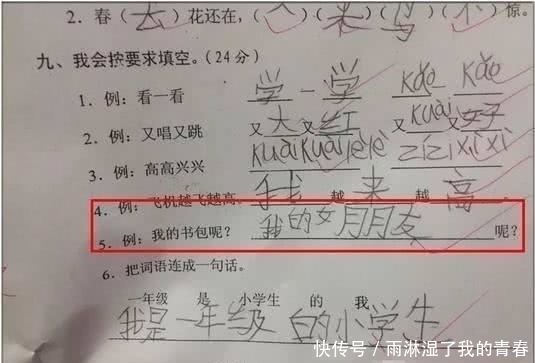 2. 春(去)花还在,( 人 )( 来 )( 鸟 )( 不 )惊。
九、我会按要求填空。(24分)
1. 例：看一看 学 一 学 kǎo kǎo
2. 例：又唱又跳 又大又红 又kuài又好
3. 例：高高兴兴 kuài kuài lè lè zǐ zǐ xì xì
4. 例：飞机越飞越高。 我 越 来 越 高 。
5. 例：我的书包呢？ 我的女月朋友 呢？
6. 把词语连成一句话。
一年级 是 小学生 的 我
我是一年级白的小学生
快传号/雨淋湿了我的青春